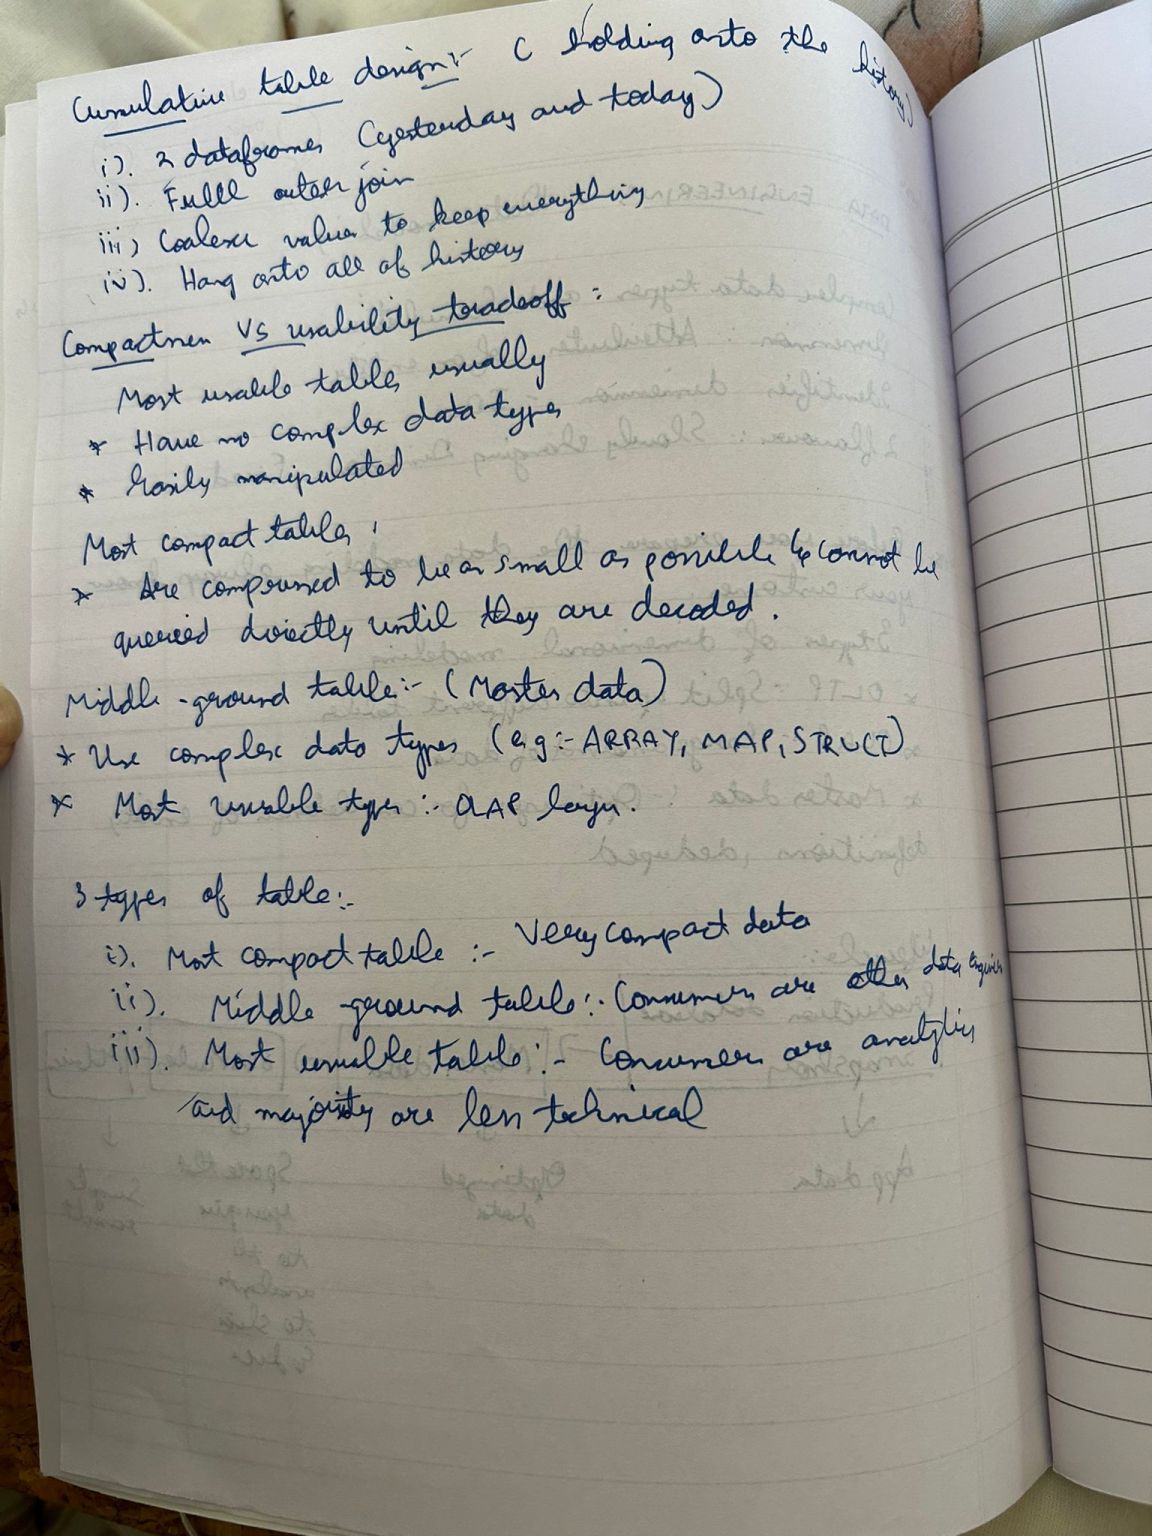 Cumulative table design:- (holding onto the history)
i). 2 dataframes (yesterday and today)
ii). Fulll outer join
iii) Coalesce values to keep everything
iv). Hang onto all of history
Compactness VS usability tradeoff :
Most usable tables usually
* Have no complex data types
* Easily manipulated
Most compact tables :
* Are compressed to be as small as possible & cannot be
queried directly until they are decoded.
Middle-ground table:- (Master data)
* Use complex data types (eg:- ARRAY, MAP, STRUCT)
* Most usable type:- OLAP layer.
3 types of table:-
i). Most compact table :- Very compact data
ii). Middle-ground table:- Consumers are other data engineers
iii). Most usable table:- Consumers are analytics
and majority are less technical